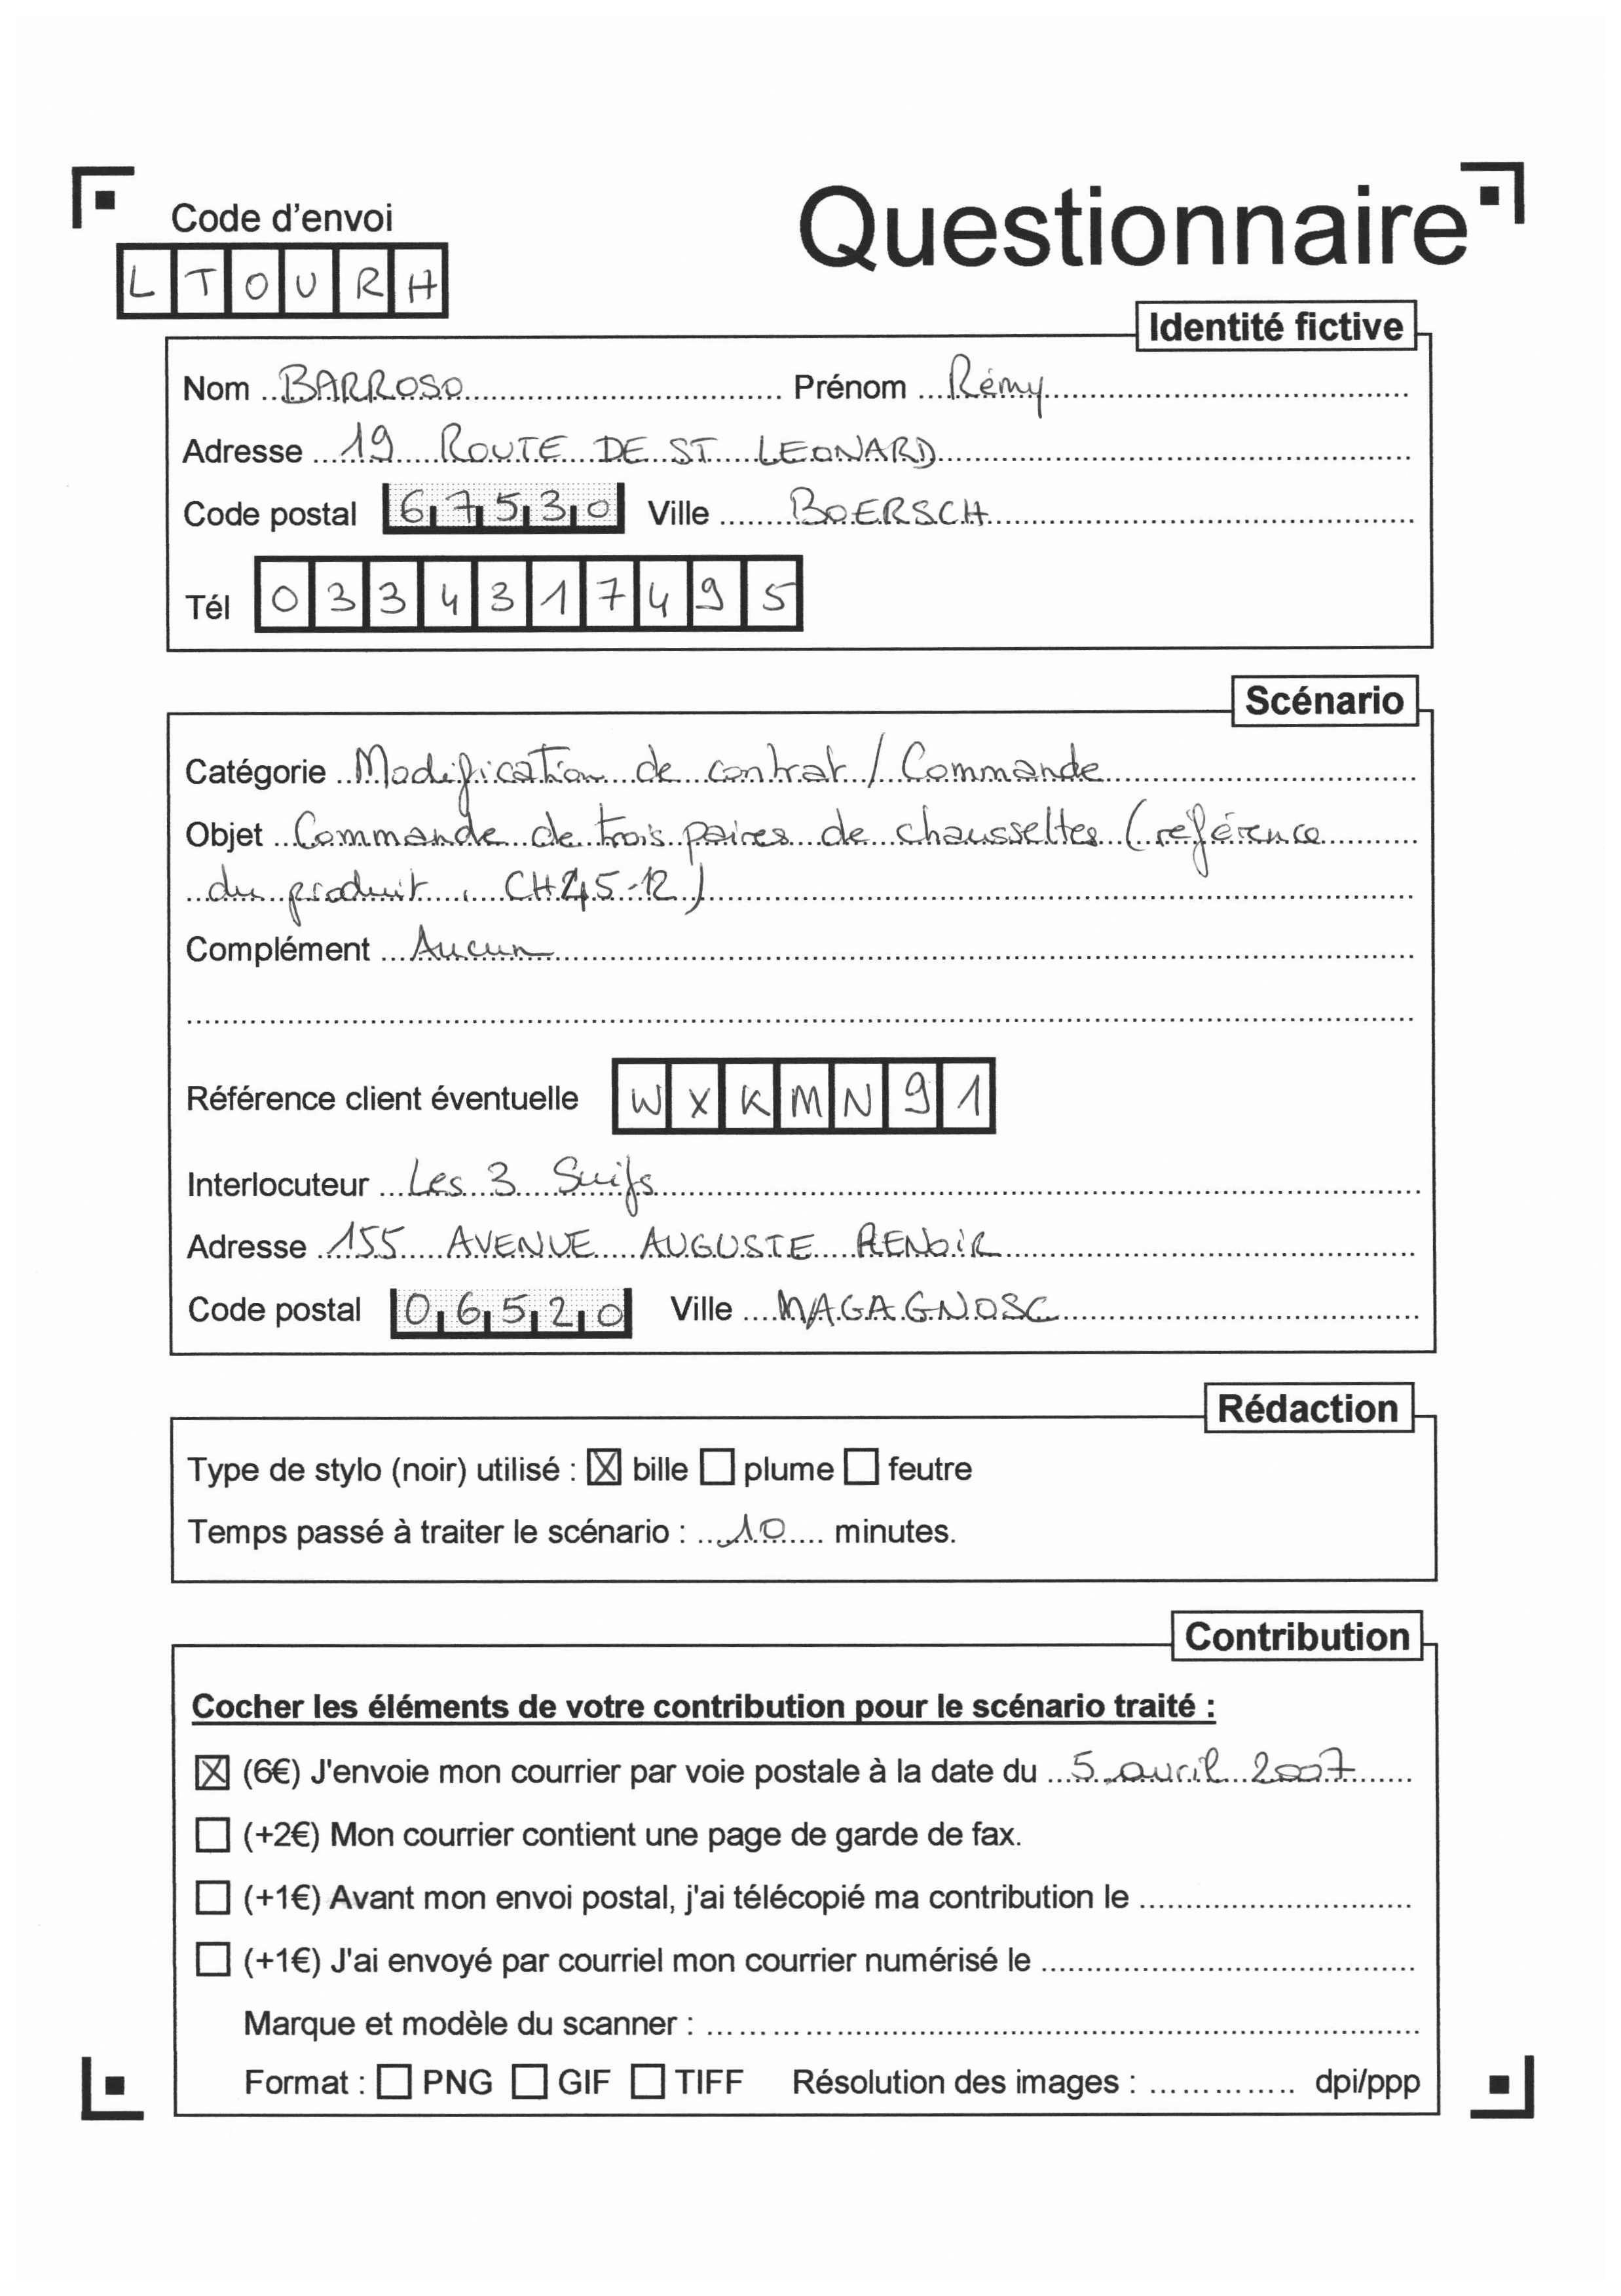 Questionnaire
Code d'envoi
LTOURH
Identité fictive
Nom BARROSO Prénom Rémy
Adresse 19 ROUTE DE ST LEONARD
Code postal 67530 Ville BOERSCH
Tél 0334317495
Scénario
Catégorie Modification de contrat / Commande
Objet Commande de trois paires de chaussettes (référence
du produit : CH45-12)
Complément Aucun
Référence client éventuelle WXKMN91
Interlocuteur Les 3 Suifs
Adresse 155 AVENUE AUGUSTE RENOIR
Code postal 06520 Ville MAGAGNOSC
Rédaction
Type de stylo (noir) utilisé : ☒ bille ☐ plume ☐ feutre
Temps passé à traiter le scénario : 10 minutes.
Contribution
Cocher les éléments de votre contribution pour le scénario traité :
☒ (6€) J'envoie mon courrier par voie postale à la date du 5 avril 2007
☐ (+2€) Mon courrier contient une page de garde de fax.
☐ (+1€) Avant mon envoi postal, j'ai télécopié ma contribution le
☐ (+1€) J'ai envoyé par courriel mon courrier numérisé le
Marque et modèle du scanner :
Format : ☐ PNG ☐ GIF ☐ TIFF Résolution des images : dpi/ppp